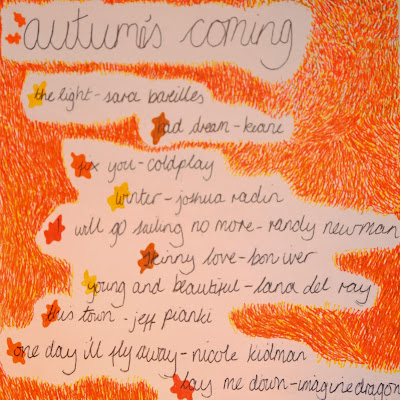 autumn's coming
the light - sara bareilles
bad dream - keane
fix you - coldplay
winter - joshua radin
I will go sailing no more - randy newman
skinny love - bon iver
young and beautiful - lana del ray
this town - jeff pianki
one day i'll fly away - nicole kidman
lay me down - imagine dragon